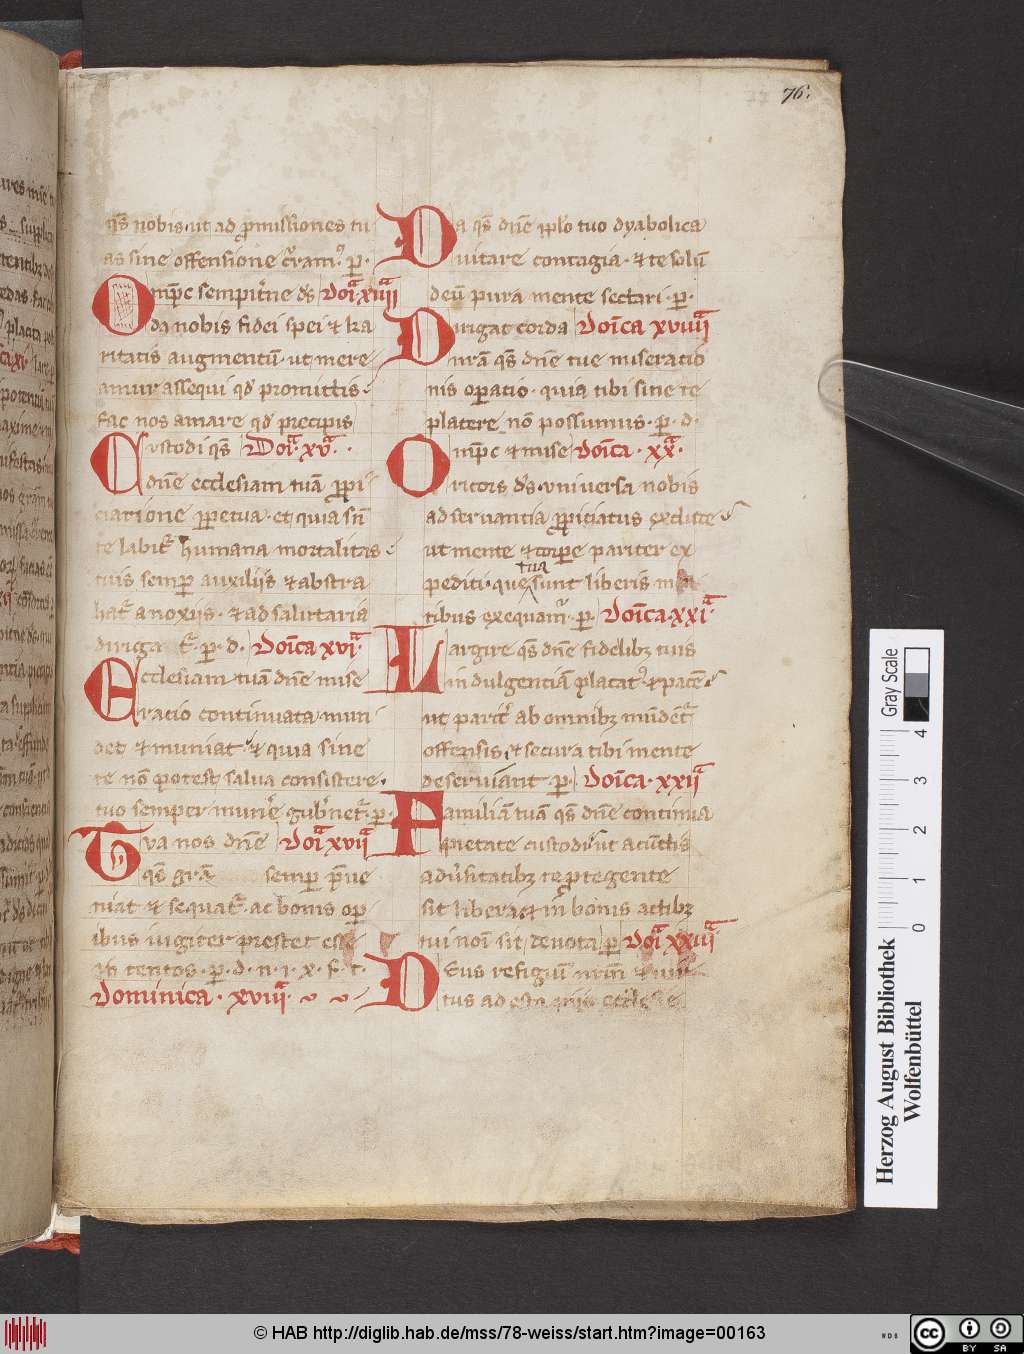 76.
qs̄ nobis ut ad ꝓmissiones tu
as sine offensione cͬramꝰ. ꝑ.
Omp̄c sempit̄ne ds̄ Doīa xiiii
da nobis fidei spei ⁊ ka
ritatis augmentū. ut mere
amur assequi qd̓ promittis.
fac nos amare qd̓ precipis
Custodi qs̄ Doīa. xv.
dn̄e ecclesiam tuā ꝓpi
ciatione ꝑpetua. et quia sn̄
te labit̄ humana mortalitas
tuis semꝑ auxiliis ⁊ abstra
hat̄ a noxiis. ⁊ ad salutaria
diriga t̄. ꝑ. d. Doīca xvi.
Ecclesiam tuā dn̄e mise
ratio continuata mun
det ⁊ muniat. ⁊ quia sine
te nō potest salva consistere.
tuo semper mun̄e gub̄net̄. ꝑ.
Tua nos dn̄e Doīa xvii
qs̄ grā semꝑ p̄ve
niat ⁊ sequat̄. ac bonis oꝑ
ibus iugiter prestet esse
in tentos. ꝑ. d. n. i. x. f. t.
Dominica. xviii.
Da qs̄ dn̄e ip̄lo tuo dyabolica
vitare contagia. ⁊ te solū
deū pura mente sectari. ꝑ.
Dirigat corda Doīca xviiii
nrā qs̄ dn̄e tue miseratio
nis oꝑatio. quia tibi sine te
placere nō possumus. ꝑ. d.
Omp̄c ⁊ mise Doīca. xx.
ricors ds̄. universa nobis
adservantia ꝓpiciatus exclude
ut mente ⁊ corpe pariter ex
pediti. que tua sunt liberis men
tibus exequamͬ. ꝑ. Doīca. xxi.
Largire qs̄ dn̄e fidelibꝫ tuis
indulgentiā placatꝰ. ⁊ pacē.
ut parit̄ ab omnibꝫ mūdent̄
offensis, ⁊ secura tibi mente
deserviant. ꝑ. Doīca. xxii
Familiā tuā qs̄ dn̄e continua
pietate custodi. ut a cūctis
adūsitatibꝫ te ꝓtegente
sit libera. ⁊ in bonis actibꝫ
tui noīi sit devota ꝑ Doīa xxiii
Deus refigiū nrm̄ ⁊ vir
tus ad esto piis ecclesie
Herzog August Bibliothek
Wolfenbüttel
Gray Scale
0 1 2 3 4
© HAB http://diglib.hab.de/mss/78-weiss/start.htm?image=00163
cc BY SA